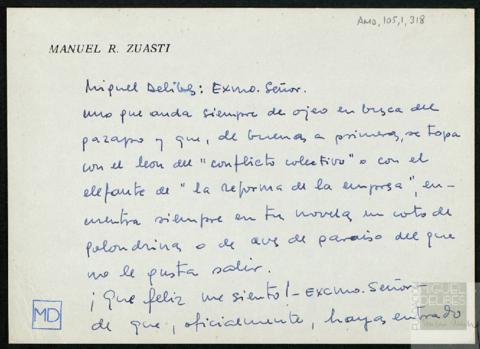 AMD, 105, 1, 318
MANUEL R. ZUASTI
Miguel Delibes: Exmo. Señor.
uno que anda siempre de ojeo en busca del
gazapo y que, de buenas a primeras, se topa
con el leon del "conflicto colectivo" o con el
elefante de "la reforma de la empresa", en-
cuentra siempre en tus novelas un coto de
golondrinas o de aves de paraiso del que
no le gusta salir.
¡Que feliz me siento! - Excmo. Señor -
de que, oficialmente, hayas entrado
MD
MIGUEL
DELIBES